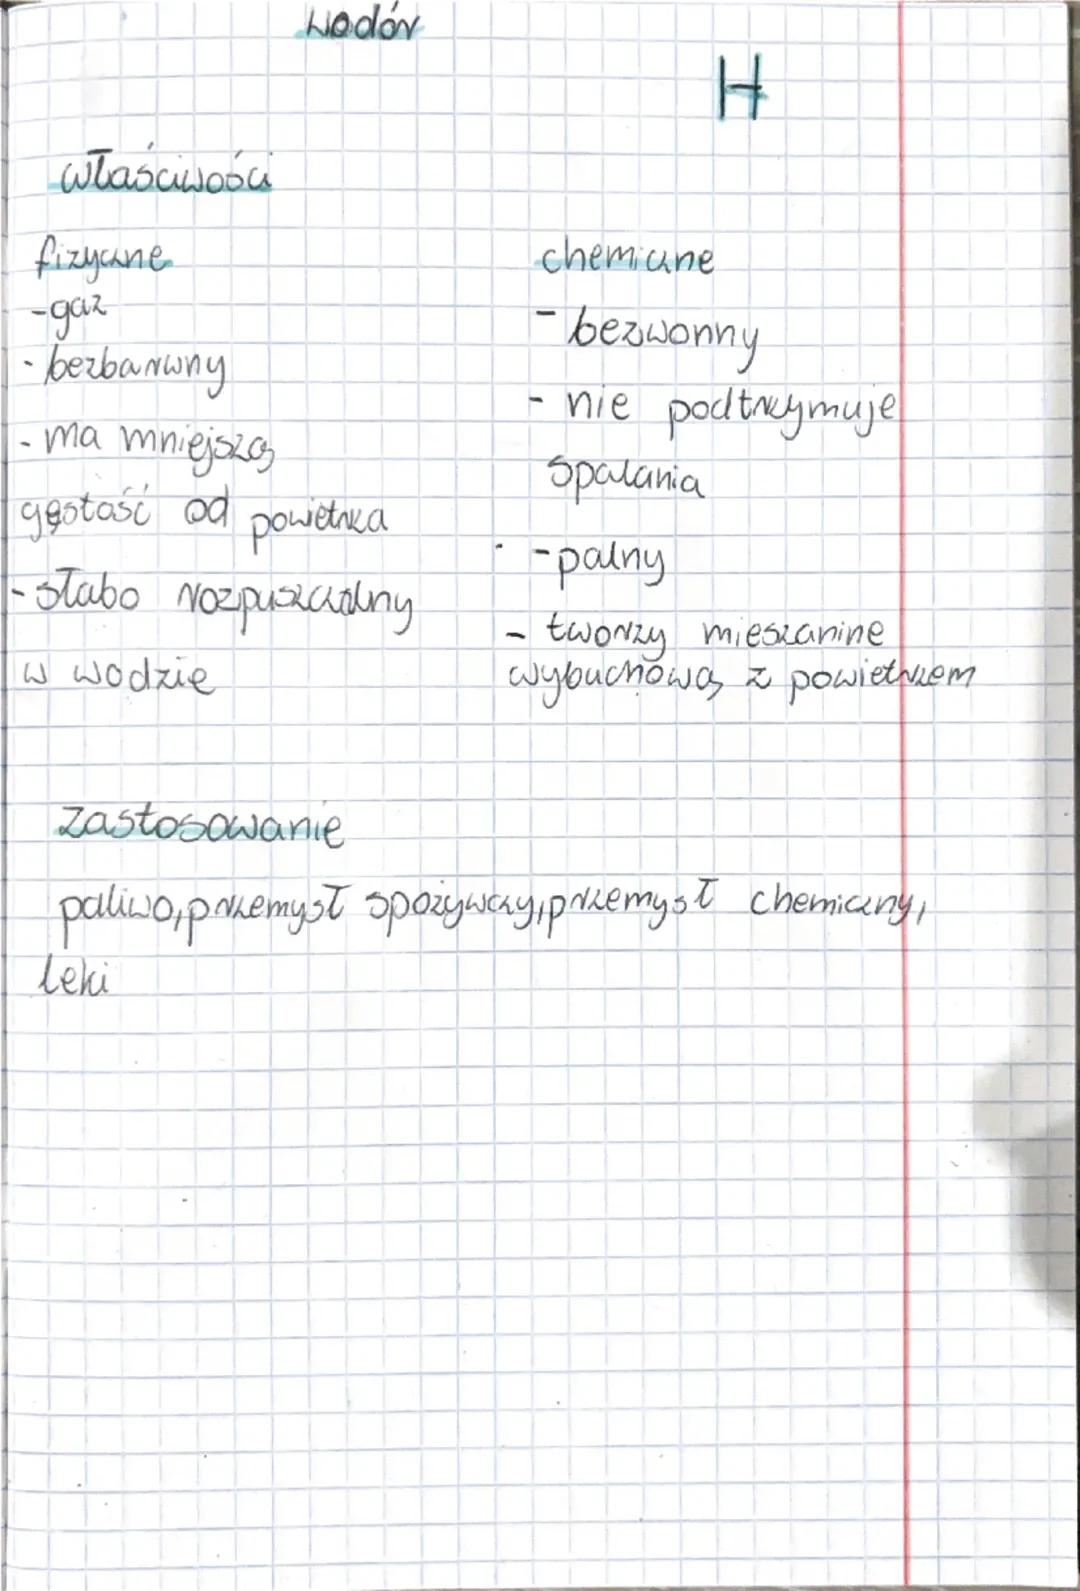 wodór
H
właściwości
fizyczne
-gaz
- bezbarwny
- ma mniejszą
gęstość od powietrza
- słabo rozpuszczalny
w wodzie
chemiczne
- bezwonny
- nie podtrzymuje
spalania
- palny
- tworzy mieszanine
wybuchową z powietrzem
zastosowanie
paliwo, przemysł spożywczy, przemysł chemiczny,
leki